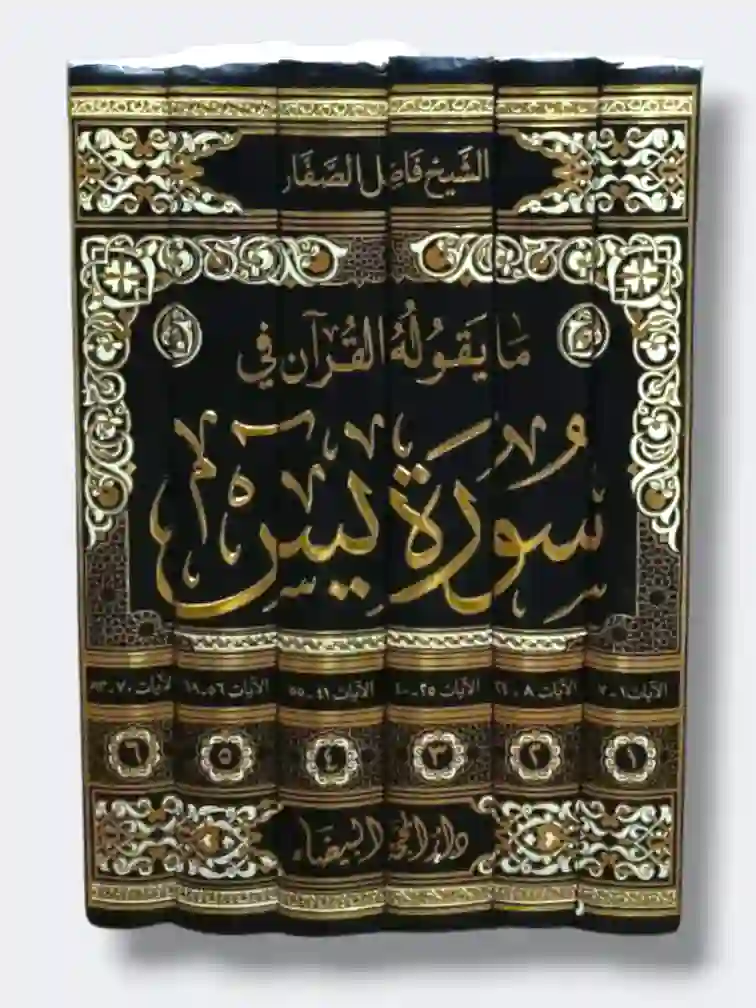 الشيخ فاضل الصفار
ما يقوله القرآن في
سورة يس
الآيات ١-٧
الآيات ٨-٢٤
الآيات ٢٥-٤٠
الآيات ٤١-٥٥
الآيات ٥٦-٦٩
الآيات ٧٠-٨٣
١
٢
٣
٤
٥
٦
دار المحجة البيضاء